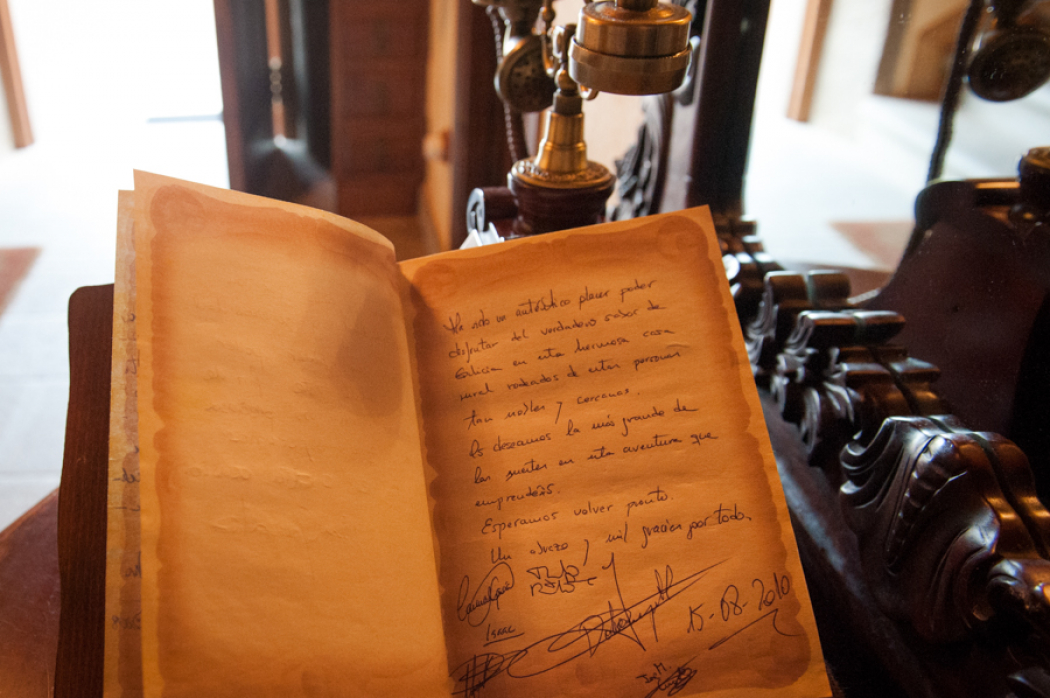 Ha sido un auténtico placer poder
disfrutar del verdadero sabor de
Galicia en esta hermosa casa
rural rodeados de estas personas
tan nobles y cercanas.
Os deseamos la más grande de
las suertes en esta aventura que
emprendéis.
Esperamos volver pronto.
Un abrazo y mil gracias por todo,
Isaac
15-08-2010